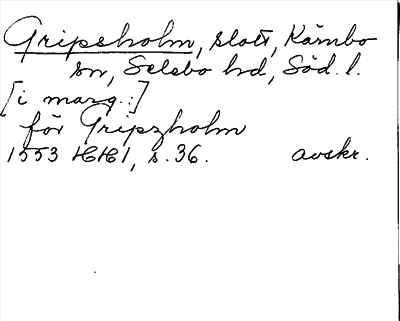 Gripsholm, slott, Kärnbo
sn, Selebo hd, Söd. l.
[i marg.:]
för Gripzholm
1553 HH1, s. 36. avskr.